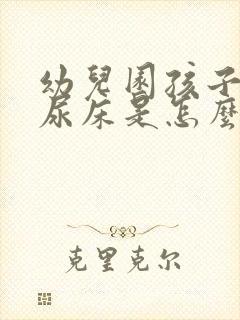 幼兒園孩子
尿床是怎麼
克里克尔